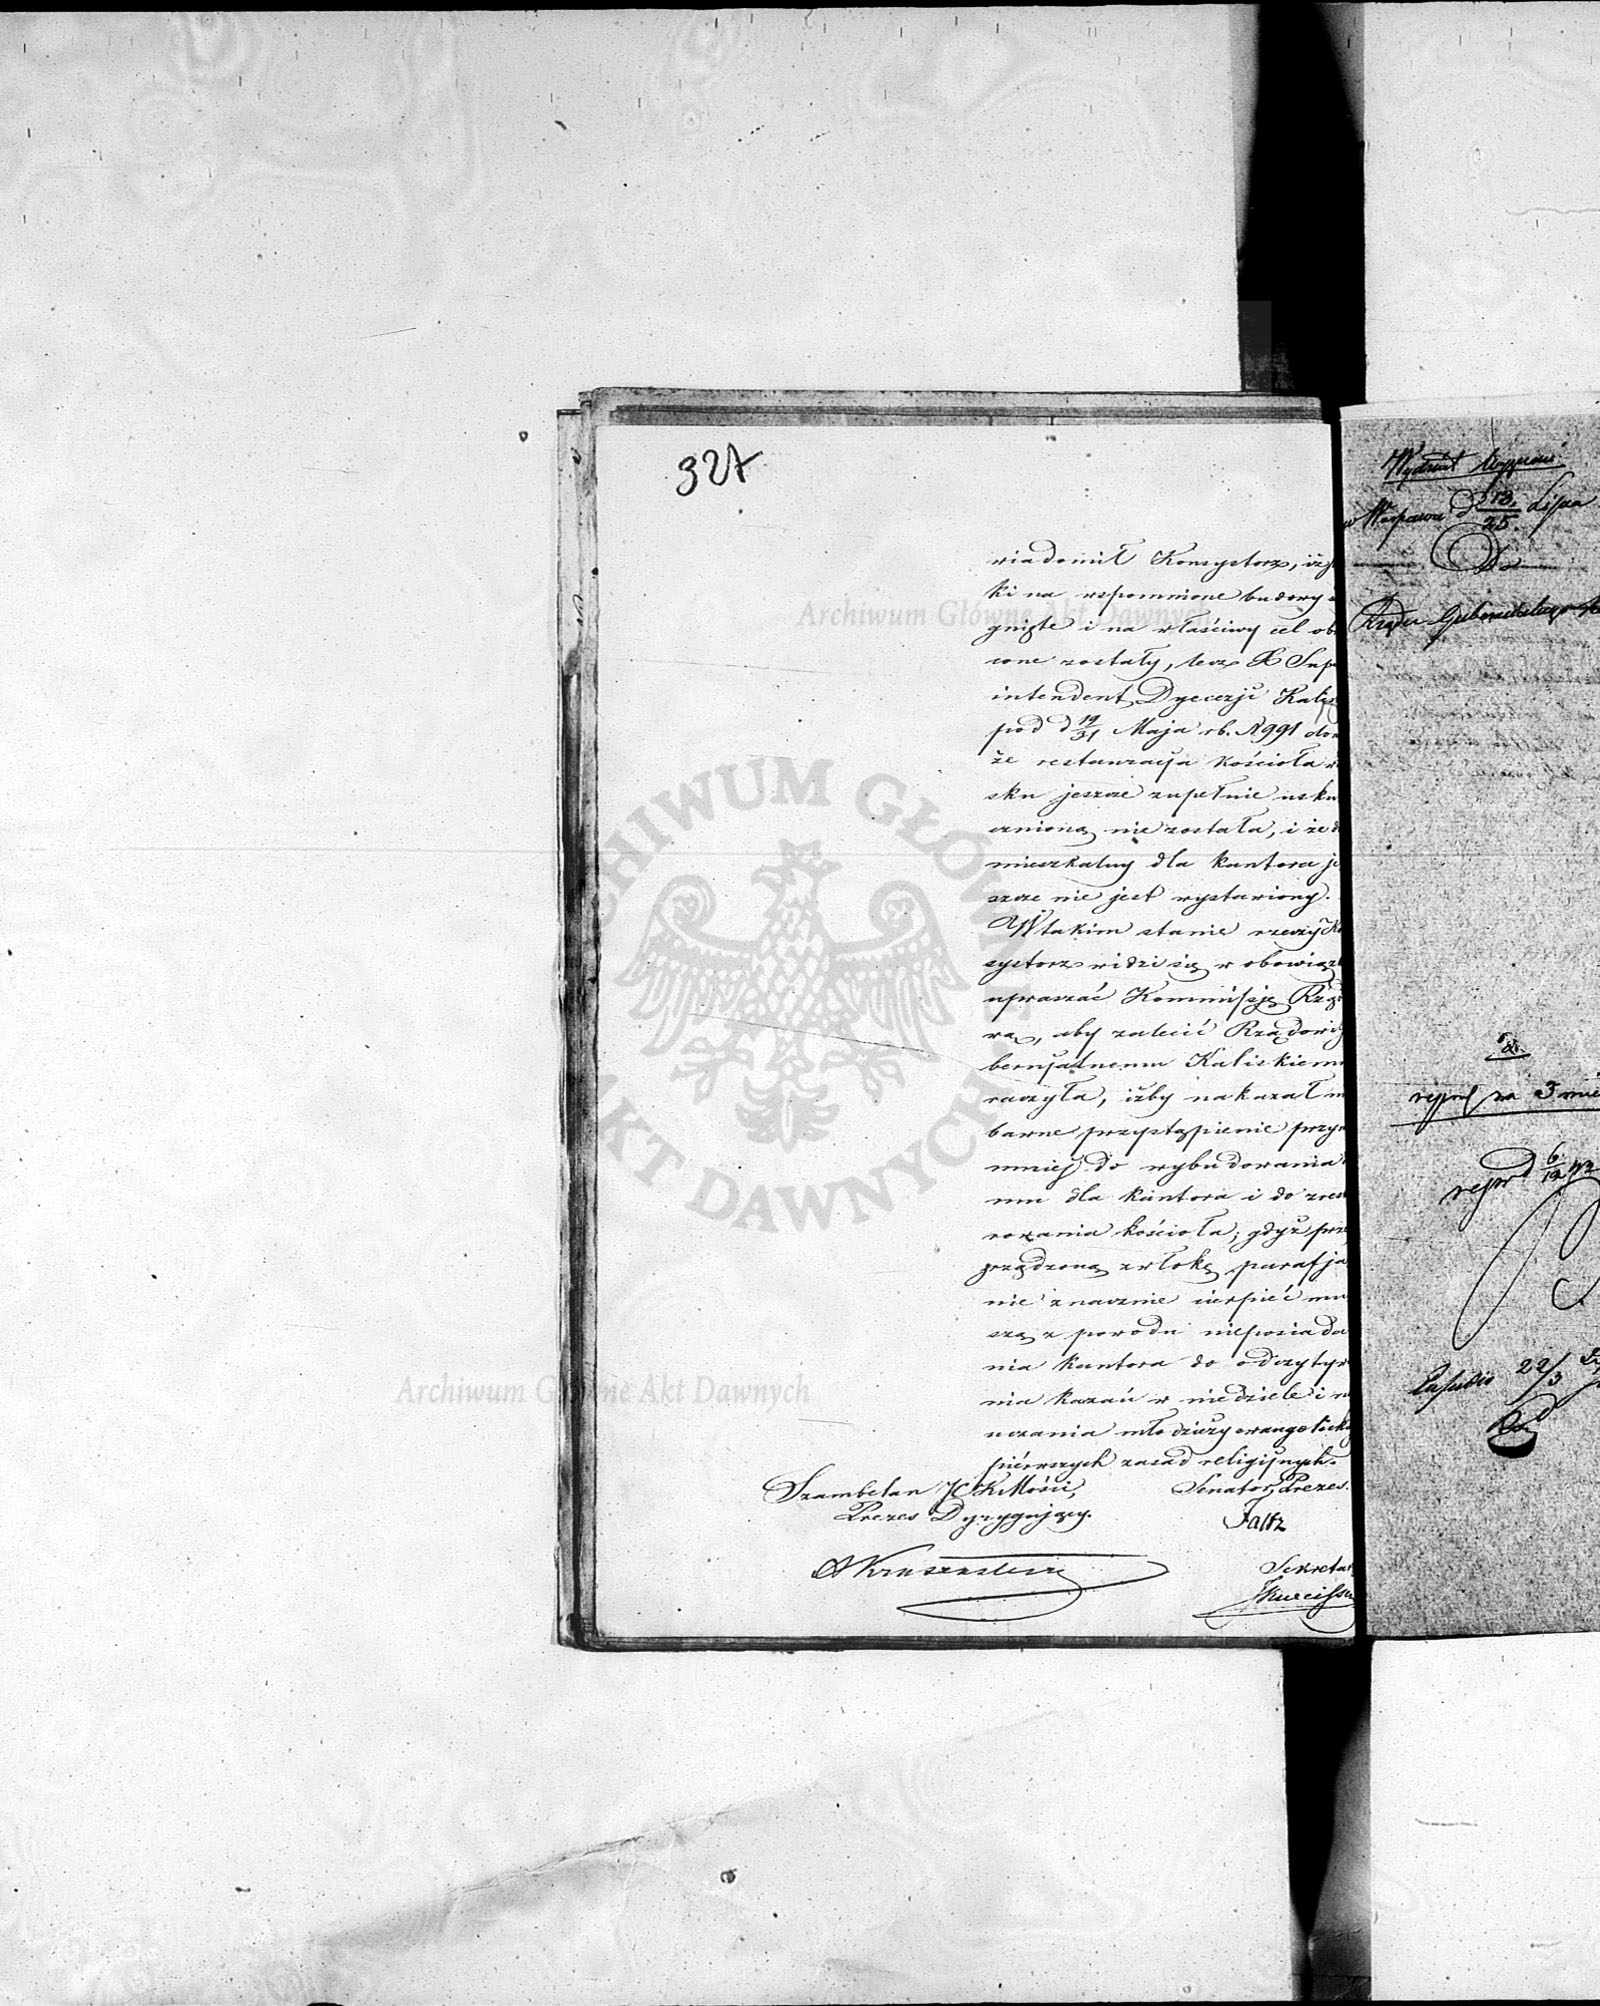 327
wiadomił Konsystorz, iż
ki na wspomnione budowy
gnięte i na właściwy cel ob
cone zostały, lecz X Supe
intendent Dyecezji Kalis
pod d 19/31 Maja rb. N 991 don
że restauracja kościoła w
sku jeszcze zupełnie usku
cznioną nie została, i że d
mieszkalny dla kantora je
szcze nie jest wystawiony.
W takim stanie rzeczy Ko
systorz widzi się w obowiązk
upraszać Kommissję Rzą
wą, aby zalecić Rządowi
bernjalnemu Kaliskiemu
raczyła, iżby nakazał
barne przystąpienie przy
mniej do wybudowania
mu dla kantora i do zres
rowania kościoła; gdyż prze
przędzoną zwłokę parafja
nie znacznie cierpieć mu
szą z powodu nieposiada
nia kantora do odczytyw
nia kazań w niedziele i
uczania młodzieży ewangelicki
pierwszych zasad religijnych.
Szambelan JCK Mości, Senator, Prezes.
Prezes Dyrygujący. Faltz
Sekretar
Wydział Wyznań
w Warszawie d 13/25 Lipca
Do
Rządu Gubernialnego
rejprod na 3 mie
22/3
Archiwum Główne Akt Dawnych
Archiwum Główne Akt Dawnych
ARCHIWUM GŁÓWNE
AKT DAWNYCH